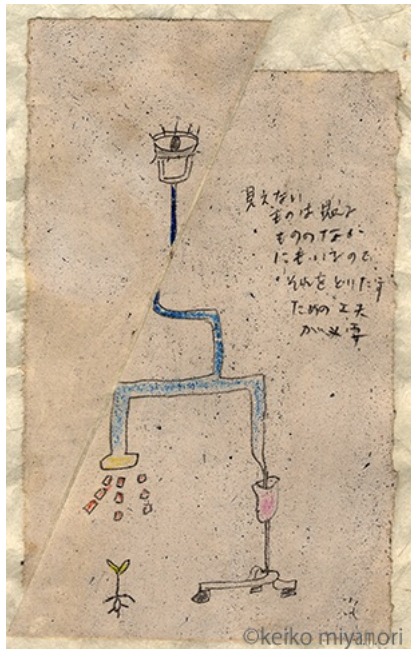 見えない
ものは
もののなか
にもいるので
それをとりだす
ための工夫
が必要
©keiko miyamori